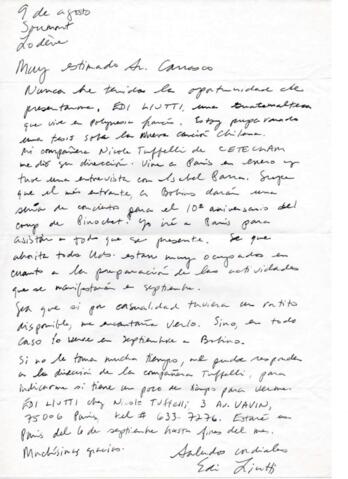 9 de agosto
Soumont
Lodève
Muy estimado Sr. Carrasco
Nunca he tenido la oportunidad de
presentarme, EDI LIUTTI, una Guatemalteca
que vive en Polynesia francesa. Estoy preparando
una tesis sobre la Nueva Canción Chilena.
Mi compañera Nicole Tuffelli de CETECHAM
me dió su dirección. Vine a París en enero y
tuve una entrevista con Isabel Parra. Supe
que el mes entrante, a Bobino darán una
serie de conciertos para el 10º aniversario del
coup de Pinochet. Yo iré a París para
asistir a todo que se presente. Se que
ahorita todo Uds. estan muy ocupados en
cuanto a la preparación de las actividades
que se manifestarán en septiembre.
Sea que si por casualidad tuviera un ratito
disponible, me encantaría verlo. Sino, en todo
caso lo veré en septiembre a Bobino.
Si no le toma mucho tiempo, me puede responder
a la dirección de la compañera Tuffelli, para
indicarme si tiene un poco de tiempo para verme.
EDI LIUTTI chez Nicole Tuffelli, 3 Av. VAVIN,
75006 París, tel # 633-7276. Estaré en
París del 6 de septiembre hasta fines del mes.
Muchísimas gracias.
Saludos cordiales
Edi Liutti